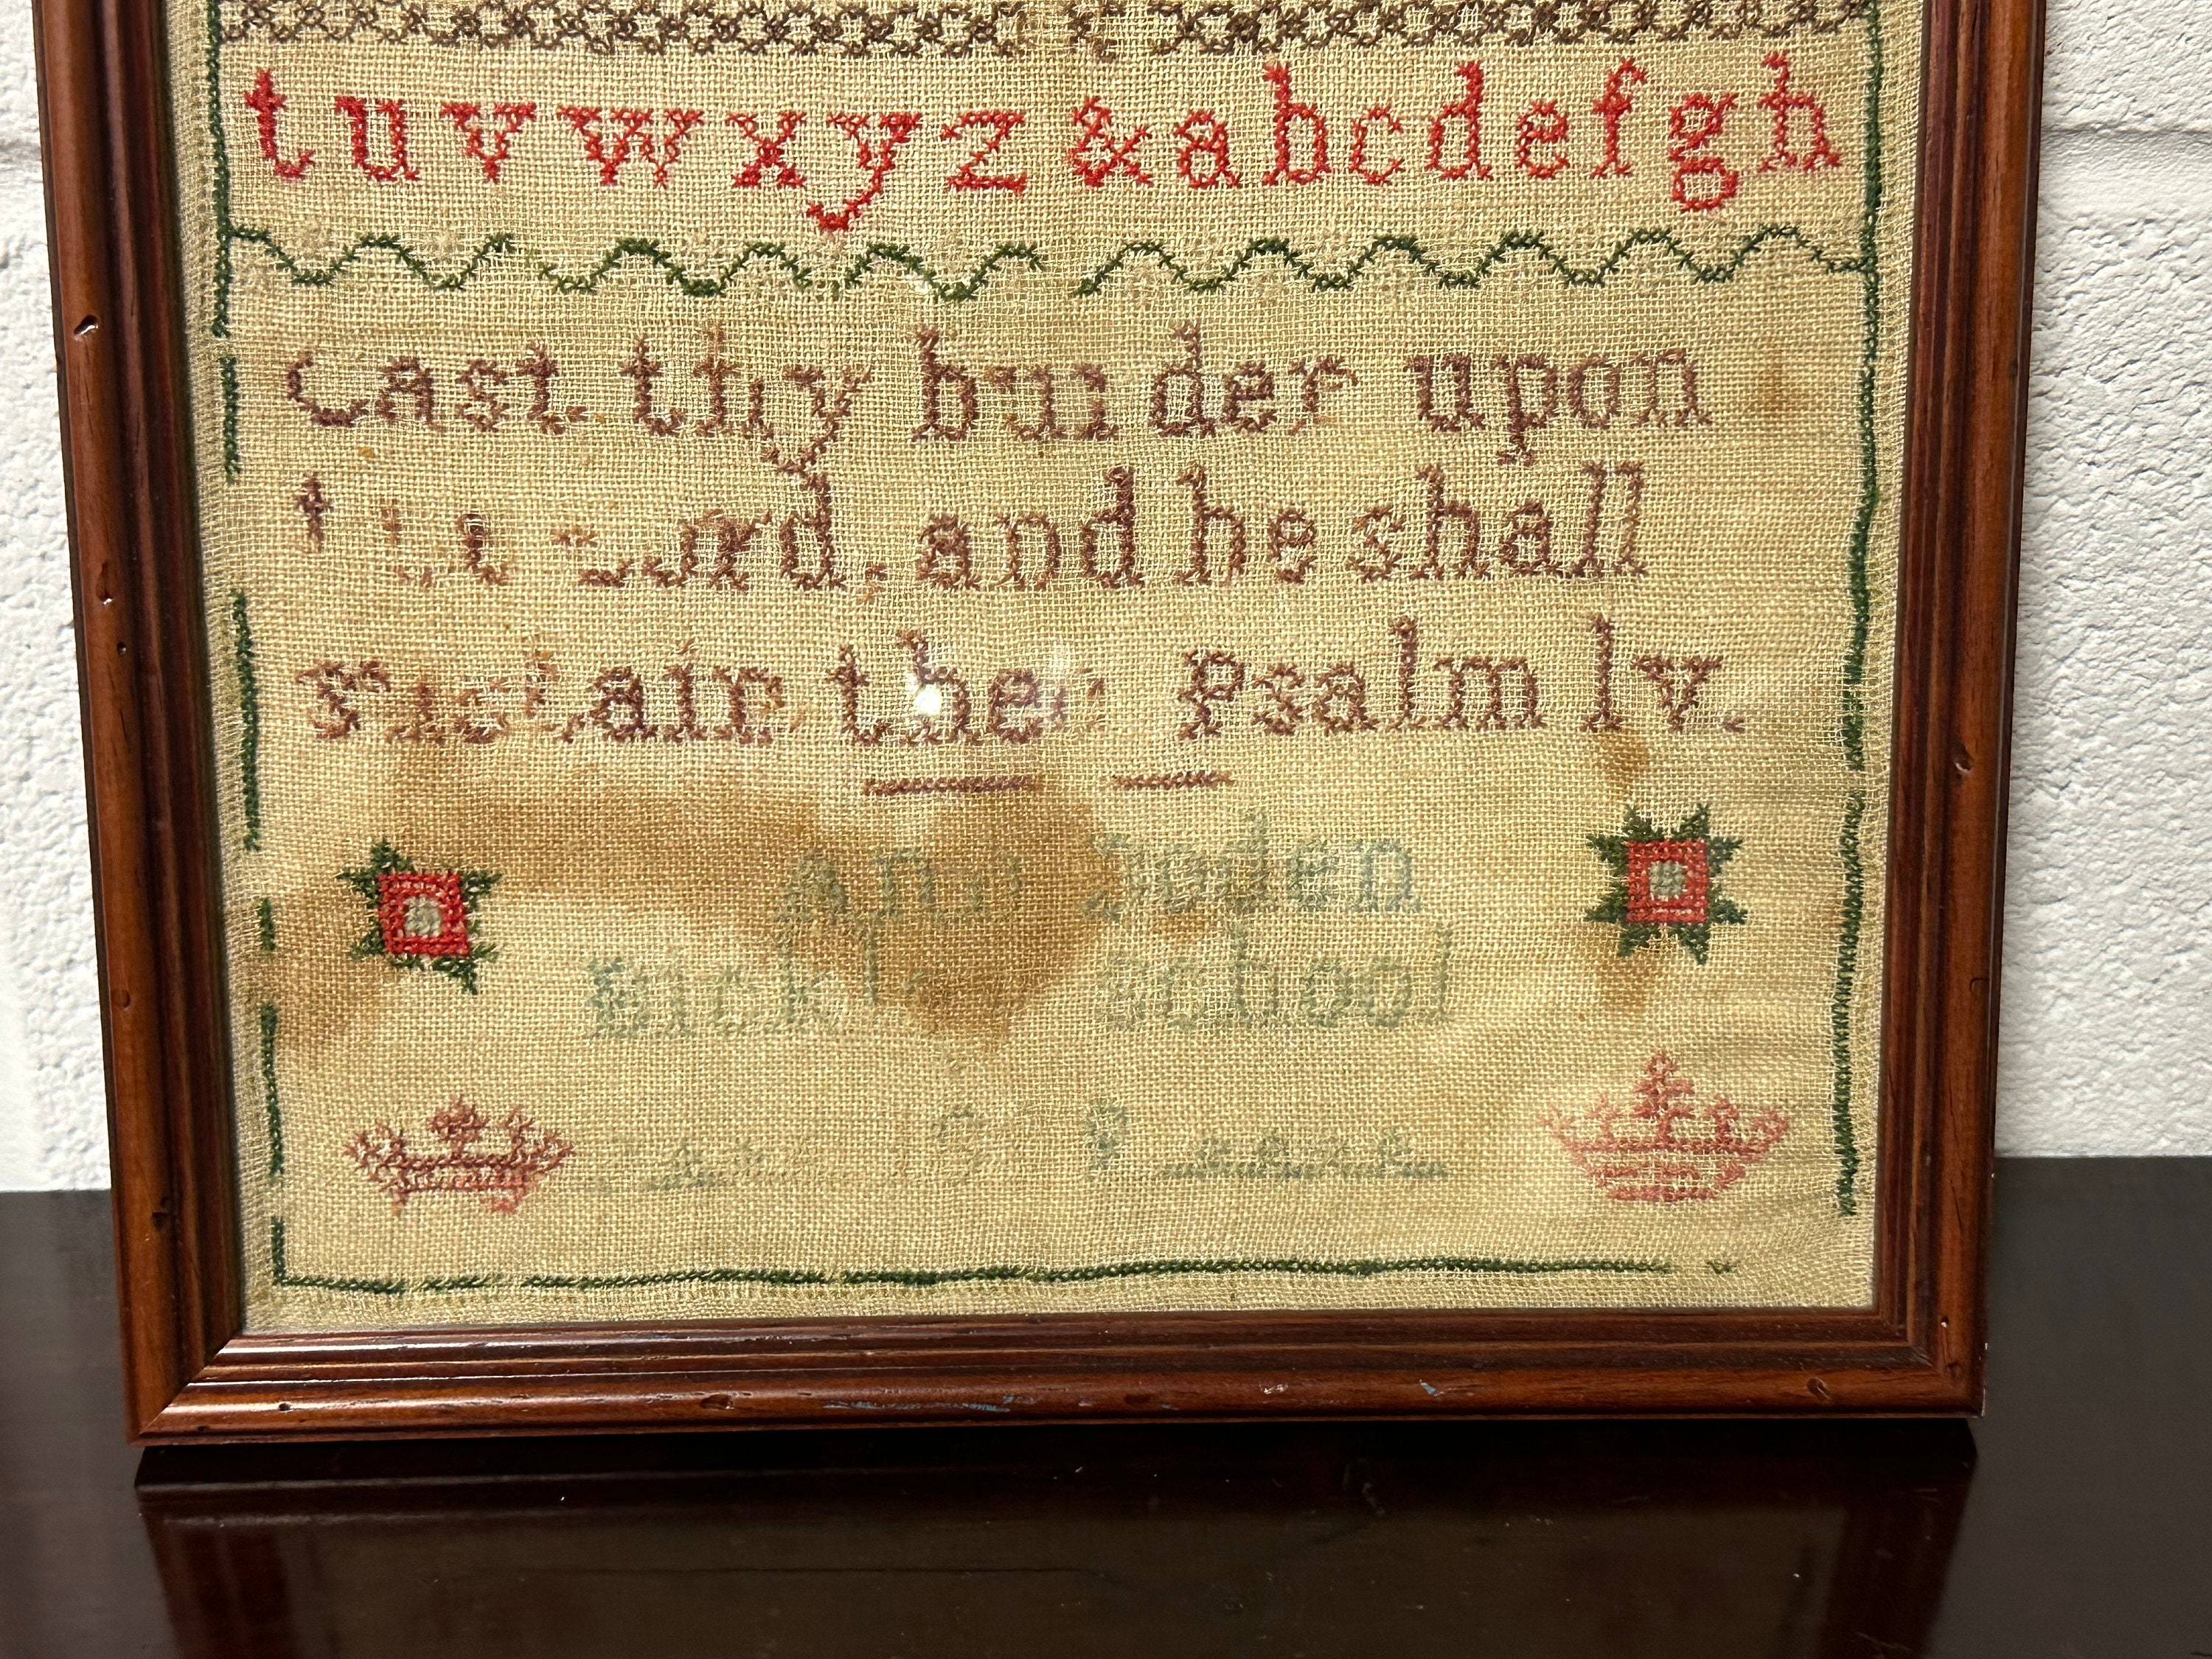 tuvwxyz&abcdefgh
Cast thy burder upon
the Lord, and he shall
sustain thee Psalm lv.
Ann oden
school